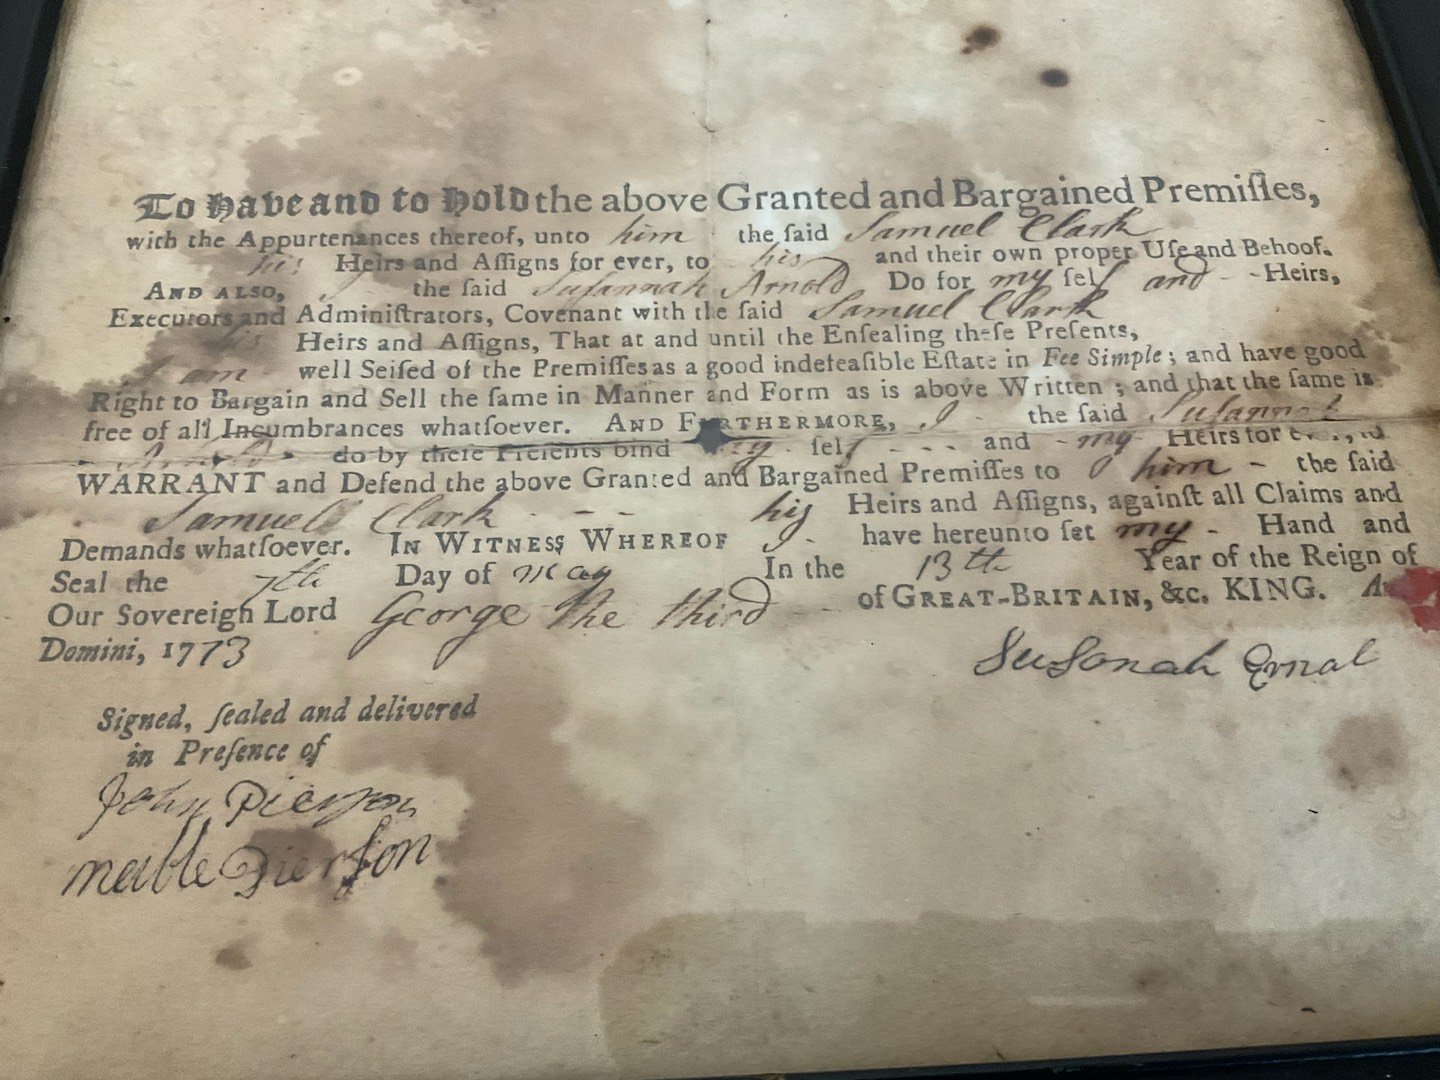 To Have and to Hold the above Granted and Bargained Premiſſes,
with the Appurtenances thereof, unto him the ſaid Samuel Clark
his Heirs and Aſſigns for ever, to his and their own proper Uſe and Behoof.
AND ALSO, I the ſaid Suſannah Arnold Do for my ſelf and - - Heirs,
Executors and Adminiſtrators, Covenant with the ſaid Samuel Clark
his Heirs and Aſſigns, That at and until the Enſealing theſe Preſents,
I am well Seiſed of the Premiſſes as a good indefeaſible Eſtate in Fee Simple; and have good
Right to Bargain and Sell the ſame in Manner and Form as is above Written; and that the ſame is
free of all Incumbrances whatſoever. AND FURTHERMORE, I - the ſaid Suſannah
Arnold do by theſe Preſents bind my ſelf - - - and - my - Heirs for ever, to
WARRANT and Defend the above Granted and Bargained Premiſſes to him - the ſaid
Samuel Clark - - - his Heirs and Aſſigns, againſt all Claims and
Demands whatſoever. IN WITNESS WHEREOF I - have hereunto ſet my - Hand and
Seal the 7th Day of may In the 13th Year of the Reign of
Our Sovereign Lord George the third of GREAT-BRITAIN, &c. KING.
Domini, 1773
Suſanah Ernal
Signed, ſealed and delivered
in Preſence of
John Pierſon
Pierſon